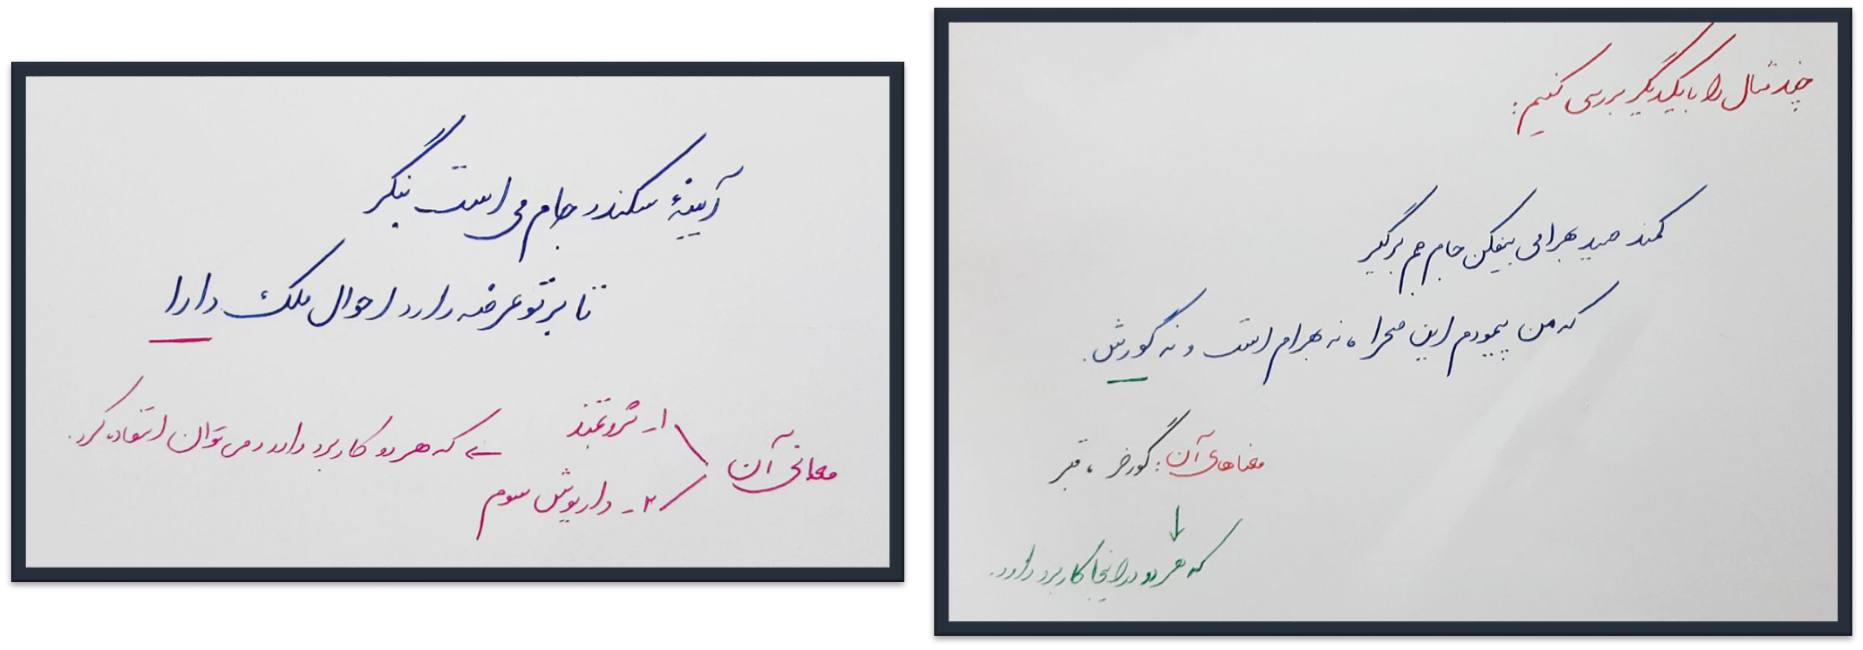 چند مثال را با یکدیگر بررسی کنیم:
کمند صید بهرامی بیفکن جام جم برگیر
که من پیمودم این صحرا، نه بهرام است و نه گورش.
معناهای آن: گورخر، قبر
که هر دو در اینجا کاربرد دارد.
آیینهٔ سکندر جام می است بنگر
تا بر تو عرضه دارد احوال ملک دارا
معانی آن
۱- ثروتمند
۲- داریوش سوم
که هر دو کاربرد دارد و می‌توان استفاده کرد.